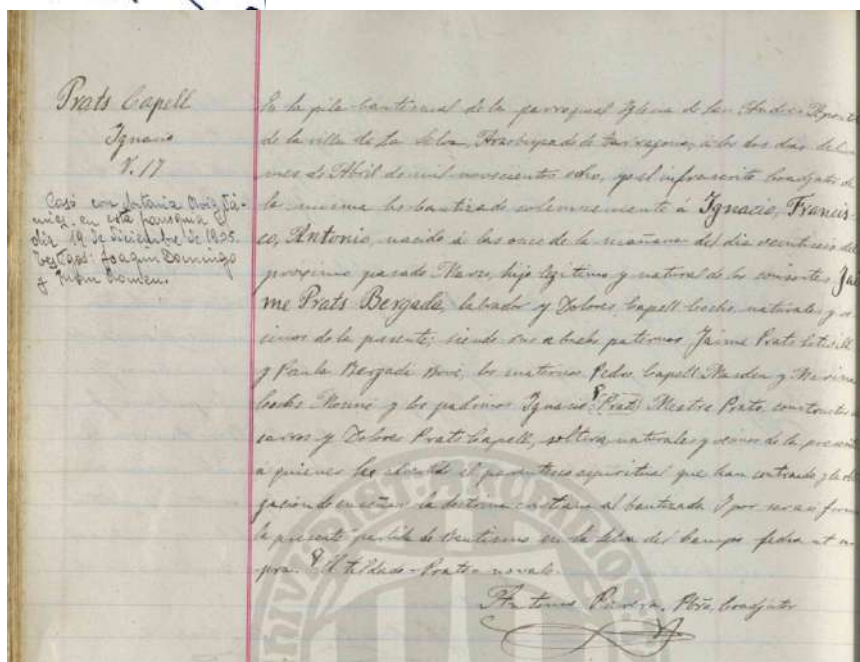 Prats Capell
Ignacio
N. 17
Casó con Antonia
en esta parroquia
día 19 de diciembre de 1935.
Testigos: Joaquin Domingo
y
En la pila bautismal de la parroquial Iglesia de San Andrés
de la villa de La Selva, Arzobispado de Tarragona, á los dos dias del
mes de Abril de mil novecientos ocho, yo el infrascrito Coadjutor de
la misma he bautizado solemnemente á Ignacio, Francis-
co, Antonio, nacido á las once de la mañana del dia veintiseis del
próximo pasado Marzo, hijo legítimo y natural de los consortes Jai-
me Prats Bergadá, labrador y Dolores Capell naturales y ve-
cinos de la presente; siendo sus abuelos paternos Jaime Prats
y Paula Bergadá los maternos Pedro Capell y
y los padrinos Ignacio (Prats) Mestre Prats, constructor
carros y Dolores Prats Capell, soltera naturales y vecinos de la presente
á quienes he advertido el parentesco espiritual que han contraido y la obli-
gacion de enseñar la doctrina cristiana al bautizado. Y por ser así firmo
la presente partida de Bautismo en la Selva del Campo fecha ut su-
pra. El tildado - Prats - no vale.
Antonio Pbro. Coadjutor